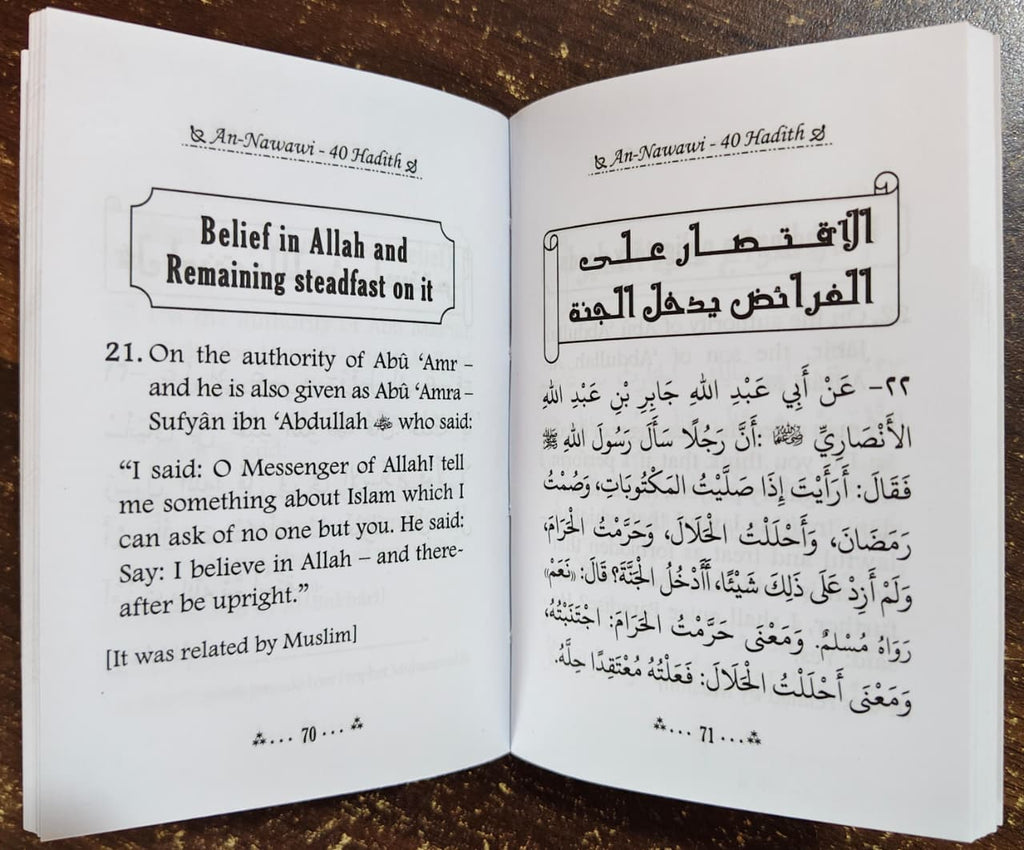 An-Nawawi - 40 Hadith
Belief in Allah and
Remaining steadfast on it
21. On the authority of Abû ‘Amr –
and he is also given as Abû ‘Amra –
Sufyân ibn ‘Abdullah who said:
“I said: O Messenger of Allah! tell
me something about Islam which I
can ask of no one but you. He said:
Say: I believe in Allah – and there-
after be upright.”
[It was related by Muslim]
70
An-Nawawi - 40 Hadith
الاقتصار على
الفرائض يدخل الجنة
٢٢- عَنْ أَبِي عَبْدِ اللهِ جَابِرِ بْنِ عَبْدِ اللهِ
الأَنْصَارِيِّ ﵄ :أَنَّ رَجُلًا سَأَلَ رَسُولَ اللهِ ﷺ
فَقَالَ: أَرَأَيْتَ إِذَا صَلَّيْتُ المَكْتُوبَاتِ، وَصُمْتُ
رَمَضَانَ، وَأَحْلَلْتُ الْحَلَالَ، وَحَرَّمْتُ الْحَرَامَ،
وَلَمْ أَزِدْ عَلَى ذَلِكَ شَيْئًا، أَأَدْخُلُ الْجَنَّةَ؟ قَالَ: «نَعَمْ»
رَوَاهُ مُسْلِمٌ. وَمَعْنَى حَرَّمْتُ الْحَرَامَ: اجْتَنَبْتُهُ،
وَمَعْنَى أَحْلَلْتُ الْحَلَالَ: فَعَلْتُهُ مُعْتَقِدًا حِلَّهُ.
71